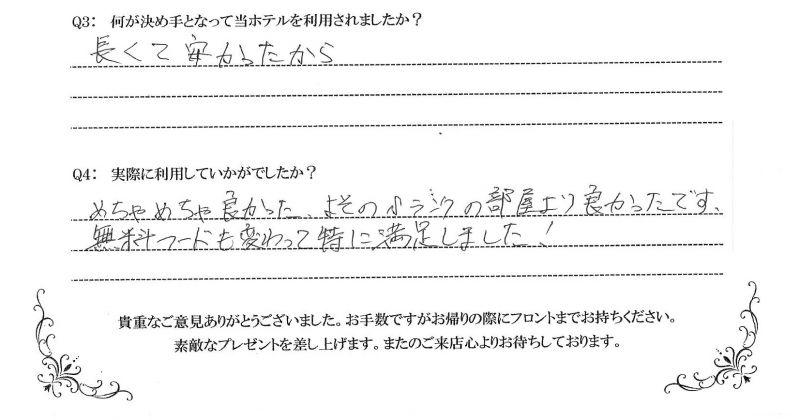 Q3: 何が決め手となって当ホテルを利用されましたか?
長くて安かったから
Q4: 実際に利用していかがでしたか?
めちゃめちゃ良かった、よその小ランクの部屋より良かったです、
無料フードも変わって特に満足しました!
貴重なご意見ありがとうございました。お手数ですがお帰りの際にフロントまでお持ちください。
素敵なプレゼントを差し上げます。またのご来店心よりお待ちしております。